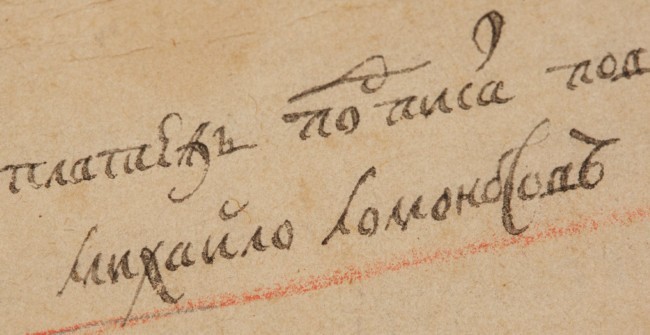 платежъ подписа под
Михайло Ломоносовъ